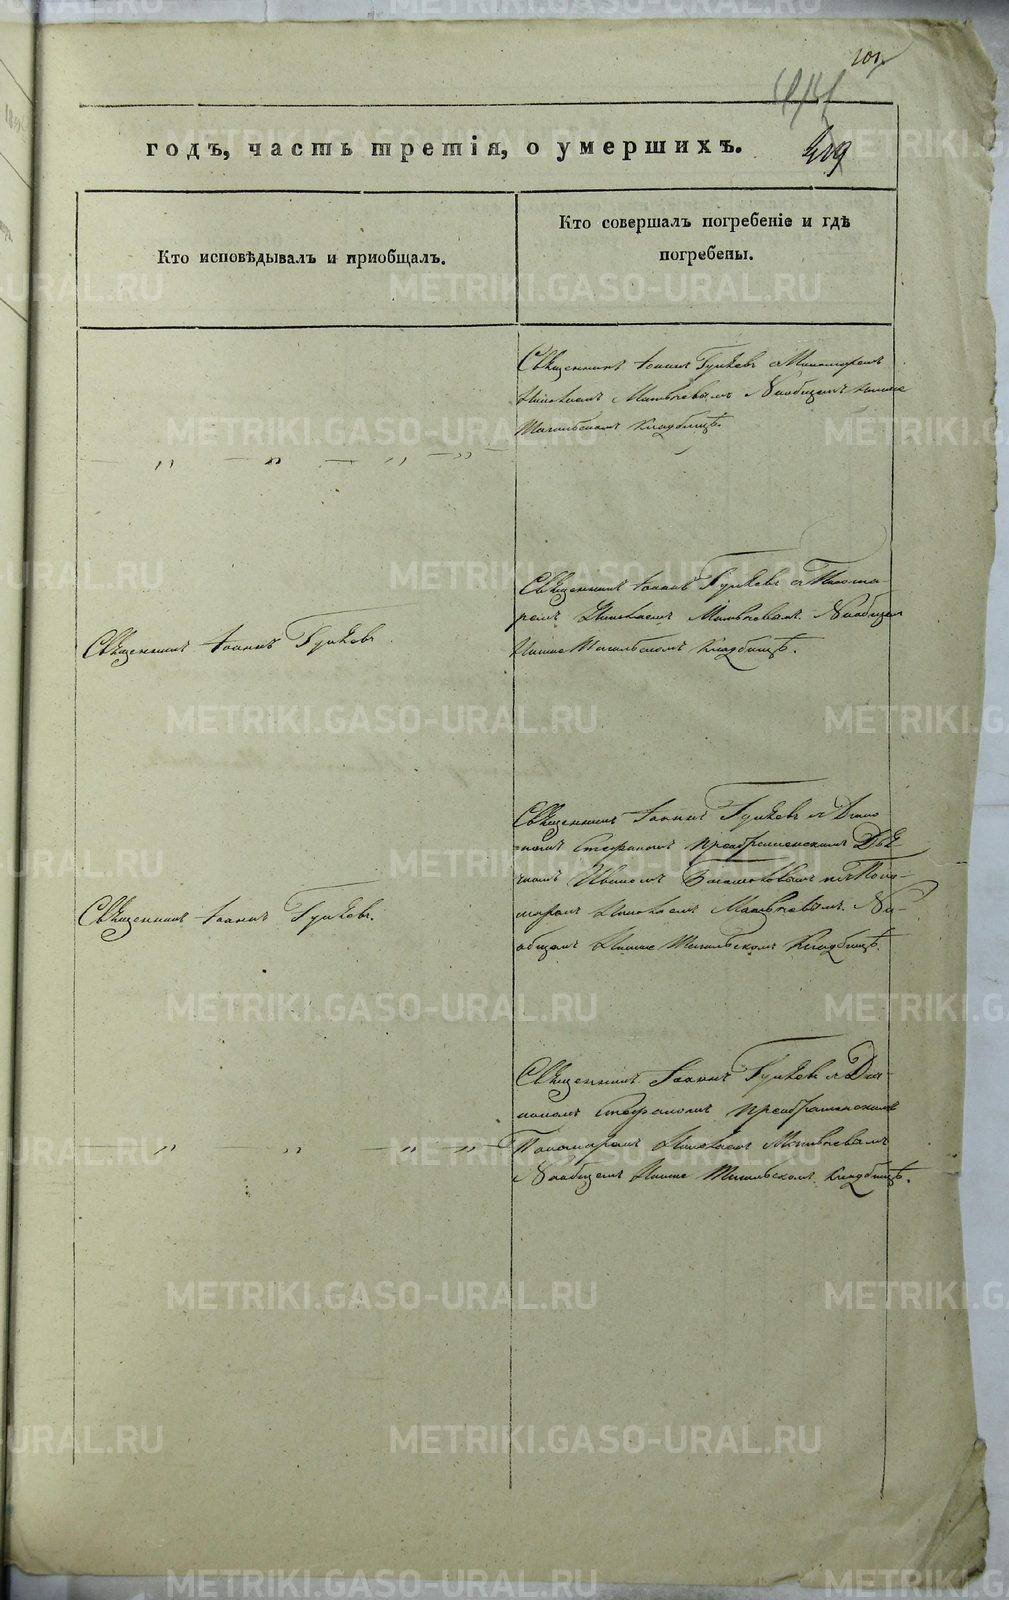 годъ, часть третія, о умершихъ.
209
Кто исповѣдывалъ и пріобщалъ.
Кто совершалъ погребеніе и гдѣ
погребены.
Священникъ Іоаннъ с Пономаремъ
Николаемъ Матвѣевымъ На общемъ Нижне
Тагильскомъ Кладбищѣ.
Священникъ Іоаннъ
Священникъ Іоаннъ с Понома-
ремъ Николаемъ Матвѣевымъ. На общемъ
Нижне Тагильскомъ Кладбищѣ.
Священникъ Іоаннъ
Священникъ Іоаннъ с Діако
номъ Стефаномъ Преображенскимъ Дья
чкомъ Иваномъ и Поно-
маремъ Николаемъ Матвѣевымъ. На
общемъ Нижне Тагильскомъ Кладбищѣ.
Священникъ Іоаннъ с Діа-
кономъ Стефаномъ Преображенскимъ
Пономаремъ Николаемъ Матвѣевымъ
На общемъ Нижне Тагильскомъ Кладбищѣ.
METRIKI.GASO-URAL.RU